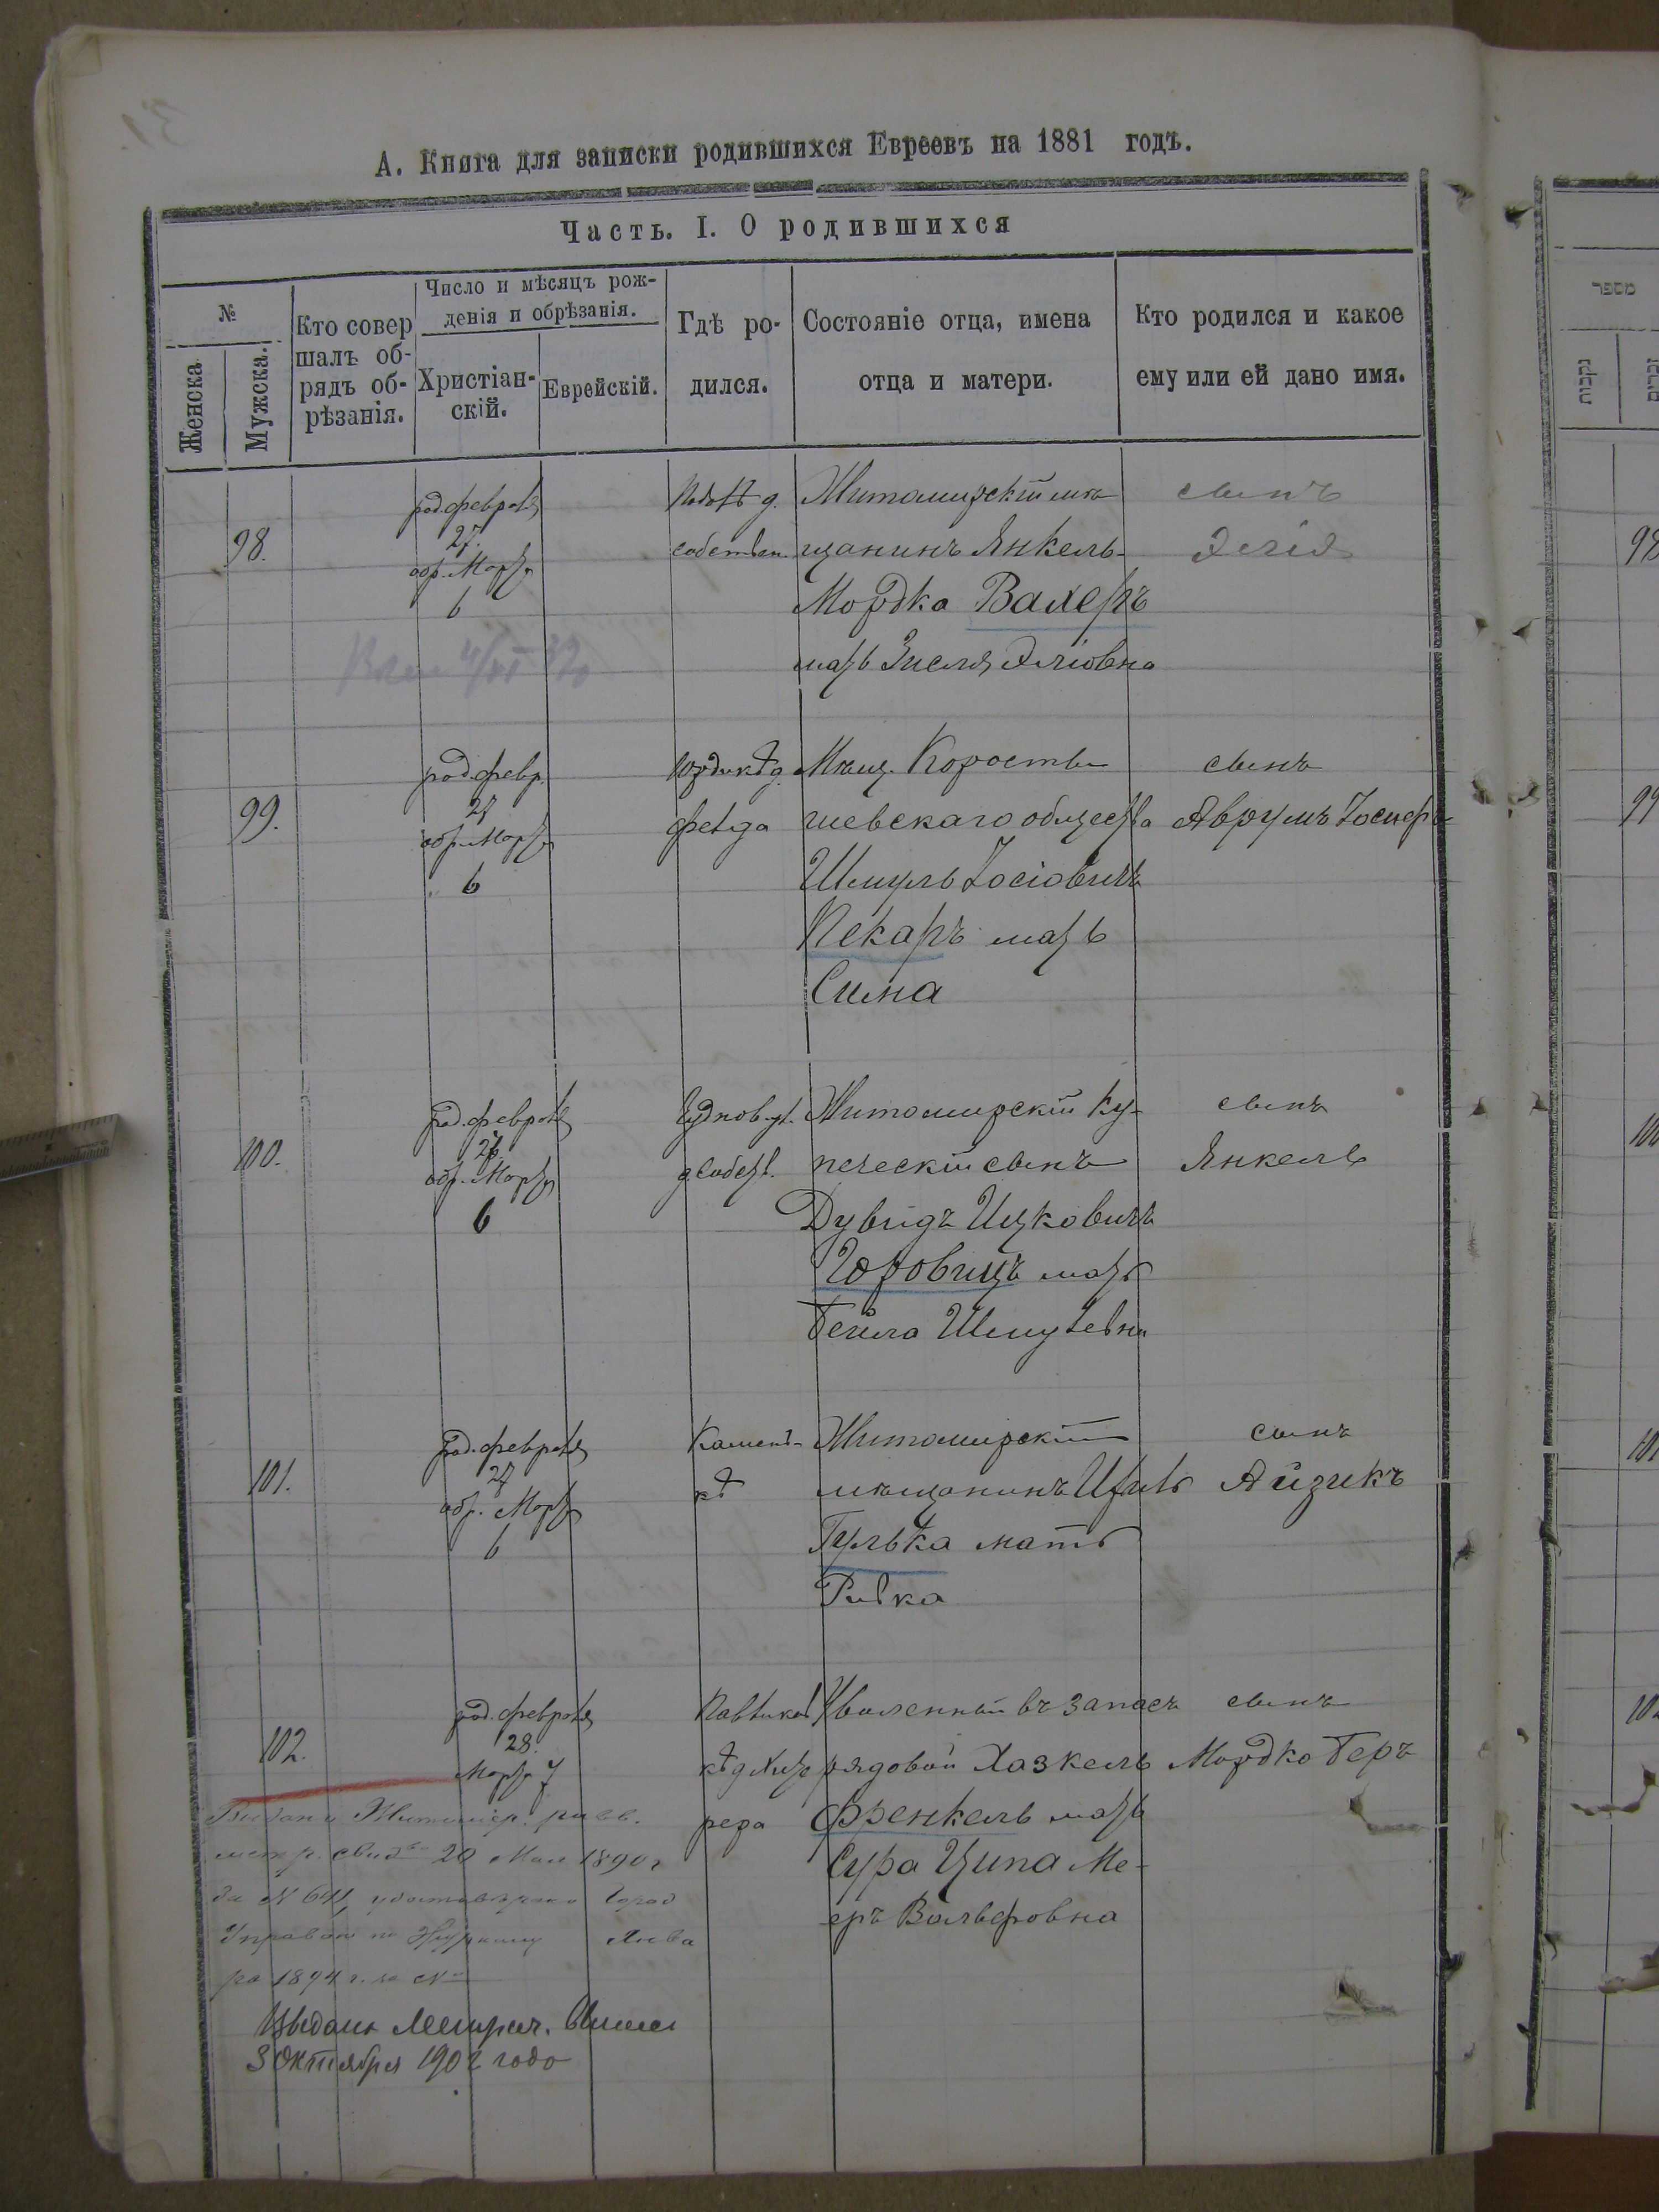 А. Книга для записки родившихся Евреевъ на 1881 годъ.
Часть. I. О родившихся
№
Женска
Мужска.
Кто совер
шалъ об-
рядъ об-
рѣзанія.
Число и мѣсяцъ рож-
денія и обрѣзанія.
Христіан-
скій.
Еврейскій.
Гдѣ ро-
дился.
Состояніе отца, имена
отца и матери.
Кто родился и какое
ему или ей дано имя.
מספר
נקבות
98.
род. февраля
27.
обр. Марта
6
собствен.
Житомирскій мѣ
щанинъ Янкель-
Мордко Вахеръ
мать Зисля Эліовна
сынъ
Элія
98
99.
род. февр.
27
обр. Марта
6
Мѣщ. Коросты-
шевскаго общества
Шмуль Іосіовичъ
Пекаръ мать
Сима
сынъ
Аврумъ Іосифъ
99
100.
род. февраля
26.
обр. Марта
6
Чудновс. ул.
д собств.
Житомирскій ку-
печескій сынъ
Дувидъ Ицковичъ
Горовицъ мать
Бейла Шмулевна
сынъ
Янкель
100
101.
род. февраля
27
обр. Марта
6
Каменъ-
кѣ
Житомирскій
мѣщанинъ
Гулька мать
Ривка
сынъ
Айзикъ
101
102.
род. февраля
28.
Марта 7
Уволенный въ запасъ
рядовой Хазкель
Френкель мать
Сура Ципа Ме-
еръ Вольфовна
сынъ
Мордко Беръ
Выдано Житомір. равв.
метр. свид. 20 Мая 1890 г
за № 641, Город
Управою Янва
ря 1894 г. за №
Выдана Метрич. Выпис
3 Октября 1902 года